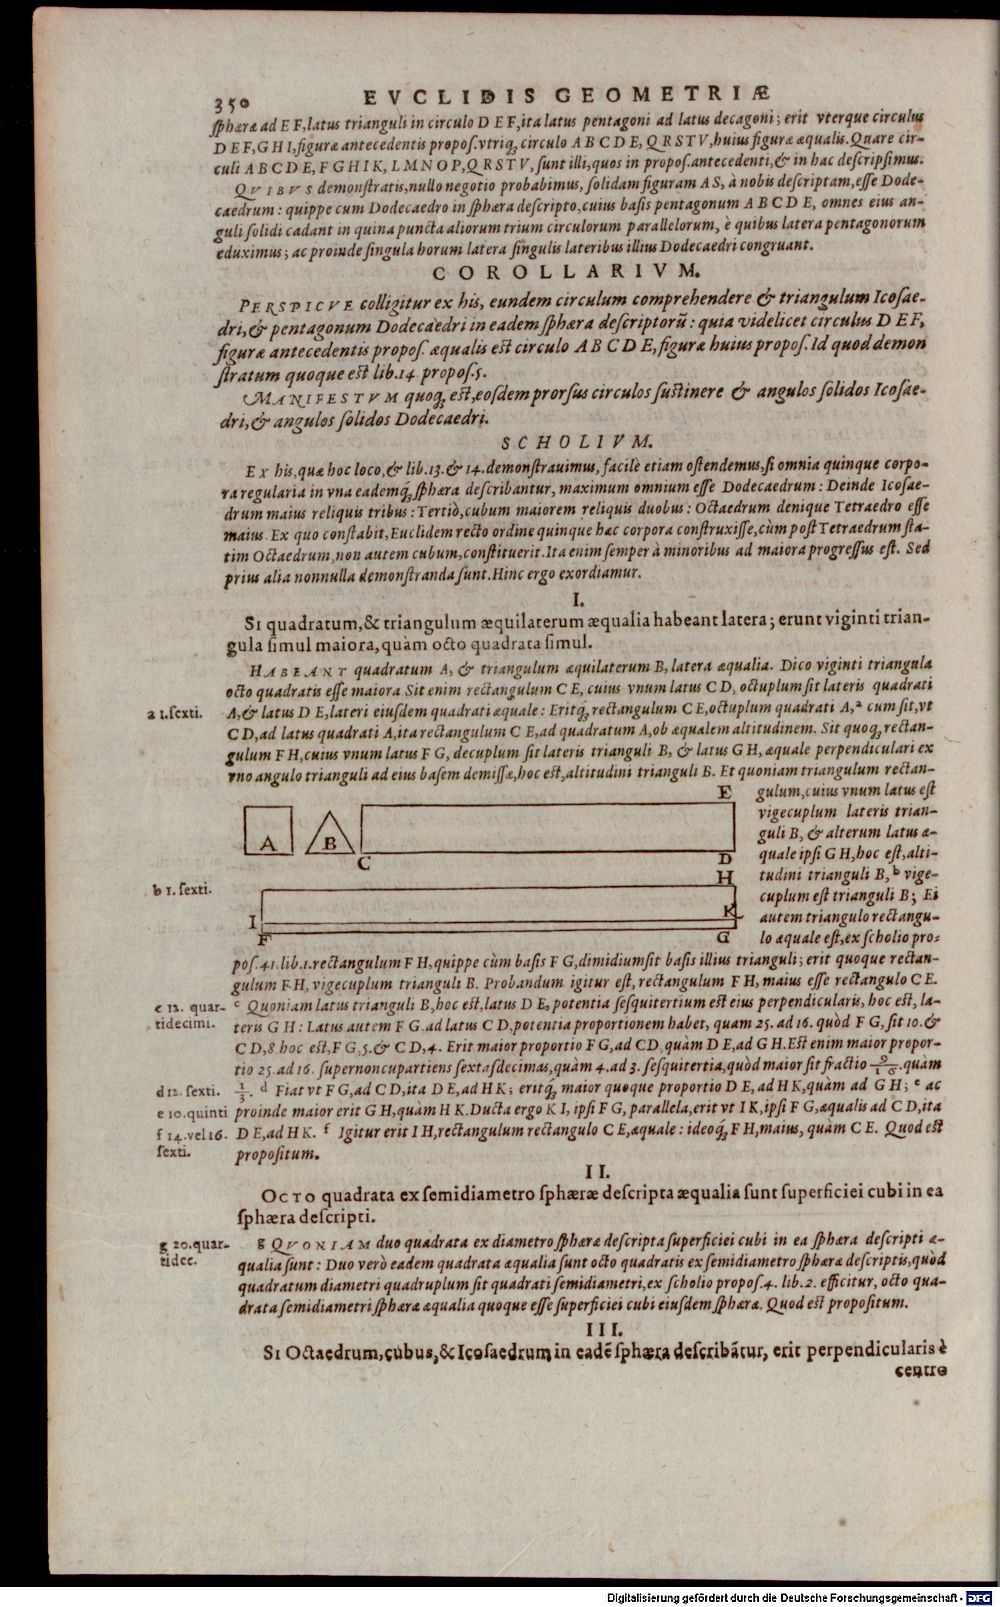 350 EVCLIDIS GEOMETRIÆ
ſphæræ ad E F, latus trianguli in circulo D E F, ita latus pentagoni ad latus decagoni; erit vterque circulus
D E F, G H I, figuræ antecedentis propoſ. vtriq́; circulo A B C D E, Q R S T V, huius figuræ æqualis. Quare cir-
culi A B C D E, F G H I K, L M N O P, Q R S T V, ſunt illi, quos in propoſ. antecedenti, & in hac deſcripſimus.
QVIBVS demonſtratis, nullo negotio probabimus, ſolidam figuram A S, à nobis deſcriptam, eſſe Dode-
caedrum: quippe cum Dodecaedro in ſphæra deſcripto, cuius baſis pentagonum A B C D E, omnes eius an-
guli ſolidi cadant in quina puncta aliorum trium circulorum parallelorum, è quibus latera pentagonorum
eduximus; ac proinde ſingula horum latera ſingulis lateribus illius Dodecaedri congruant.
COROLLARIVM.
PERSPICVE colligitur ex his, eundem circulum comprehendere & triangulum Icoſae-
dri, & pentagonum Dodecaedri in eadem ſphæra deſcriptorũ: quia videlicet circulus D E F,
figuræ antecedentis propoſ. æqualis est circulo A B C D E, figuræ huius propoſ. Id quod demon
ſtratum quoque est lib. 14. propoſ. 5.
MANIFESTVM quoq́; est, eoſdem prorſus circulos ſuſtinere & angulos ſolidos Icoſae-
dri, & angulos ſolidos Dodecaedri.
SCHOLIVM.
EX his, quæ hoc loco, & lib. 13. & 14. demonſtrauimus, facilè etiam oſtendemus, ſi omnia quinque corpo-
ra regularia in vna eademq́; ſphæra deſcribantur, maximum omnium eſſe Dodecaedrum: Deinde Icoſae-
drum maius reliquis tribus: Tertiò, cubum maiorem reliquis duobus: Octaedrum denique Tetraedro eſſe
maius. Ex quo conſtabit, Euclidem recto ordine quinque hæc corpora conſtruxiſſe, cùm poſt Tetraedrum ſta-
tim Octaedrum, non autem cubum, conſtituerit. Ita enim ſemper à minoribus ad maiora progreſſus eſt. Sed
prius alia nonnulla demonſtranda ſunt. Hinc ergo exordiamur.
I.
SI quadratum, & triangulum æquilaterum æqualia habeant latera; erunt viginti trian-
gula ſimul maiora, quàm octo quadrata ſimul.
HABEANT quadratum A, & triangulum æquilaterum B, latera æqualia. Dico viginti triangula
octo quadratis eſſe maiora. Sit enim rectangulum C E, cuius vnum latus C D, octuplum ſit lateris quadrati
a 1. ſexti. A, & latus D E, lateri eiuſdem quadrati æquale: Eritq́; rectangulum C E, octuplum quadrati A, ᵃ cum ſit, vt
C D, ad latus quadrati A, ita rectangulum C E, ad quadratum A, ob æqualem altitudinem. Sit quoq́; rectan-
gulum F H, cuius vnum latus F G, decuplum ſit lateris trianguli B, & latus G H, æquale perpendiculari ex
vno angulo trianguli ad eius baſem demiſſæ, hoc est, altitudini trianguli B. Et quoniam triangulum rectan-
gulum, cuius vnum latus eſt
vigecuplum lateris trian-
guli B, & alterum latus æ-
quale ipſi G H, hoc eſt, alti-
tudini trianguli B, ᵇ vige-
cuplum eſt trianguli B; Ei
autem triangulo rectangu-
lo æquale eſt, ex ſcholio pro-
E
A B
C D
H
b 1. ſexti.
I K
F G
poſ. 41. lib. 1. rectangulum F H, quippe cùm baſis F G, dimidium ſit baſis illius trianguli; erit quoque rectan-
gulum F H, vigecuplum trianguli B. Probandum igitur eſt, rectangulum F H, maius eſſe rectangulo C E.
c 12. quar- ᶜ Quoniam latus trianguli B, hoc est, latus D E, potentia ſeſquitertium est eius perpendicularis, hoc eſt, la-
tidecimi. teris G H: Latus autem F G, ad latus C D, potentia proportionem habet, quam 25. ad 16. quòd F G, ſit 10. &
C D, 8. hoc est, F G, 5. & C D, 4. Erit maior proportio F G, ad C D, quàm D E, ad G H. Est enim maior propor-
tio 25. ad 16. ſupernoncupartiens ſextaſdecimas, quàm 4. ad 3. ſeſquitertia, quòd maior ſit fractio 9/16. quàm
d 12. ſexti. 1/3. ᵈ Fiat vt F G, ad C D, ita D E, ad H K; eritq́; maior quoque proportio D E, ad H K, quàm ad G H; ᵉ ac
e 10. quinti proinde maior erit G H, quàm H K. Ducta ergo K I, ipſi F G, parallela, erit vt I K, ipſi F G, æqualis ad C D, ita
f 14. vel 16. D E, ad H K. ᶠ Igitur erit I H, rectangulum rectangulo C E, æquale: ideoq́; F H, maius, quàm C E. Quod eſt
ſexti. propoſitum.
II.
OCTO quadrata ex ſemidiametro ſphæræ deſcripta æqualia ſunt ſuperficiei cubi in ea
ſphæra deſcripti.
g 20. quar- g QVONIAM duo quadrata ex diametro ſphæræ deſcripta ſuperficiei cubi in ea ſphæra deſcripti æ-
tidec. qualia ſunt: Duo verò eadem quadrata æqualia ſunt octo quadratis ex ſemidiametro ſphæræ deſcriptis, quòd
quadratum diametri quadruplum ſit quadrati ſemidiametri, ex ſcholio propoſ. 4. lib. 2. efficitur, octo qua-
drata ſemidiametri ſphæræ æqualia quoque eſſe ſuperficiei cubi eiuſdem ſphæræ. Quod est propoſitum.
III.
SI Octaedrum, cubus, & Icoſaedrum in eadẽ ſphæra deſcribãtur, erit perpendicularis è
centro
Digitalisierung gefördert durch die Deutsche Forschungsgemeinschaft - DFG